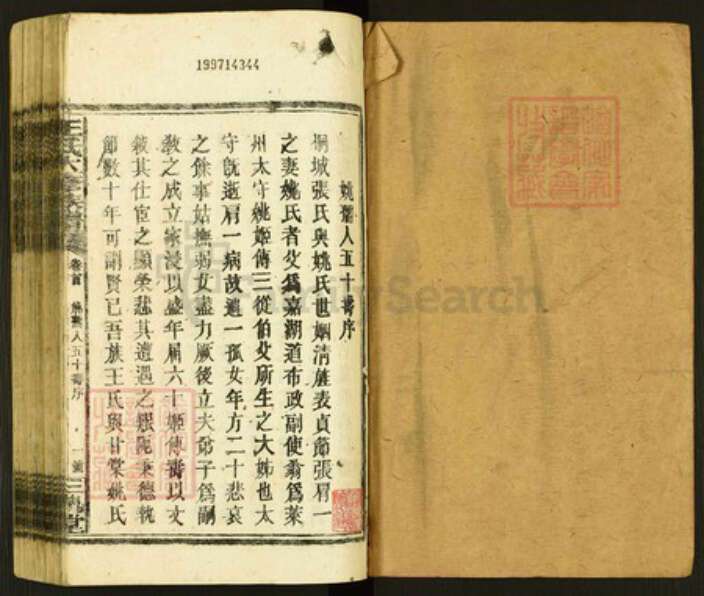 199714344
姚孺人五十壽序
桐城張氏與姚氏世姻清旌表貞節張眉一
之妻姚氏者父爲嘉湖道布政副使翁爲萊
州太守姚姬傳三從伯父所生之大姊也太
守旣逝眉一病故遺一孤女年方二十悲哀
之餘事姑撫弱女盡力厥後立夫弟子爲嗣
敎之成立家浸以盛年屆六十姬傳壽以文
敘其仕宦之顯榮悲其遭遇之艱阨秉德執
節數十年可謂賢已吾族王氏與甘棠姚氏
卷首
姚孺人五十壽序
一
號
三槐堂
FamilySearch